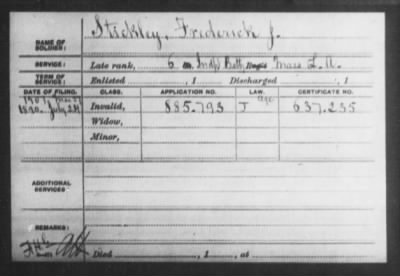 NAME OF SOLDIER: Stickley, Frederick J.
SERVICE: Late rank, 6 Indp Batt, Mass L.A.
TERM OF SERVICE: Enlisted , 1 Discharged , 1
DATE OF FILING. CLASS. APPLICATION NO. LAW. CERTIFICATE NO.
1907
1890. July 24 Invalid, 885.793 J 637.235
age
Widow,
Minor,
ADDITIONAL SERVICES
REMARKS:
Died , 1 , at